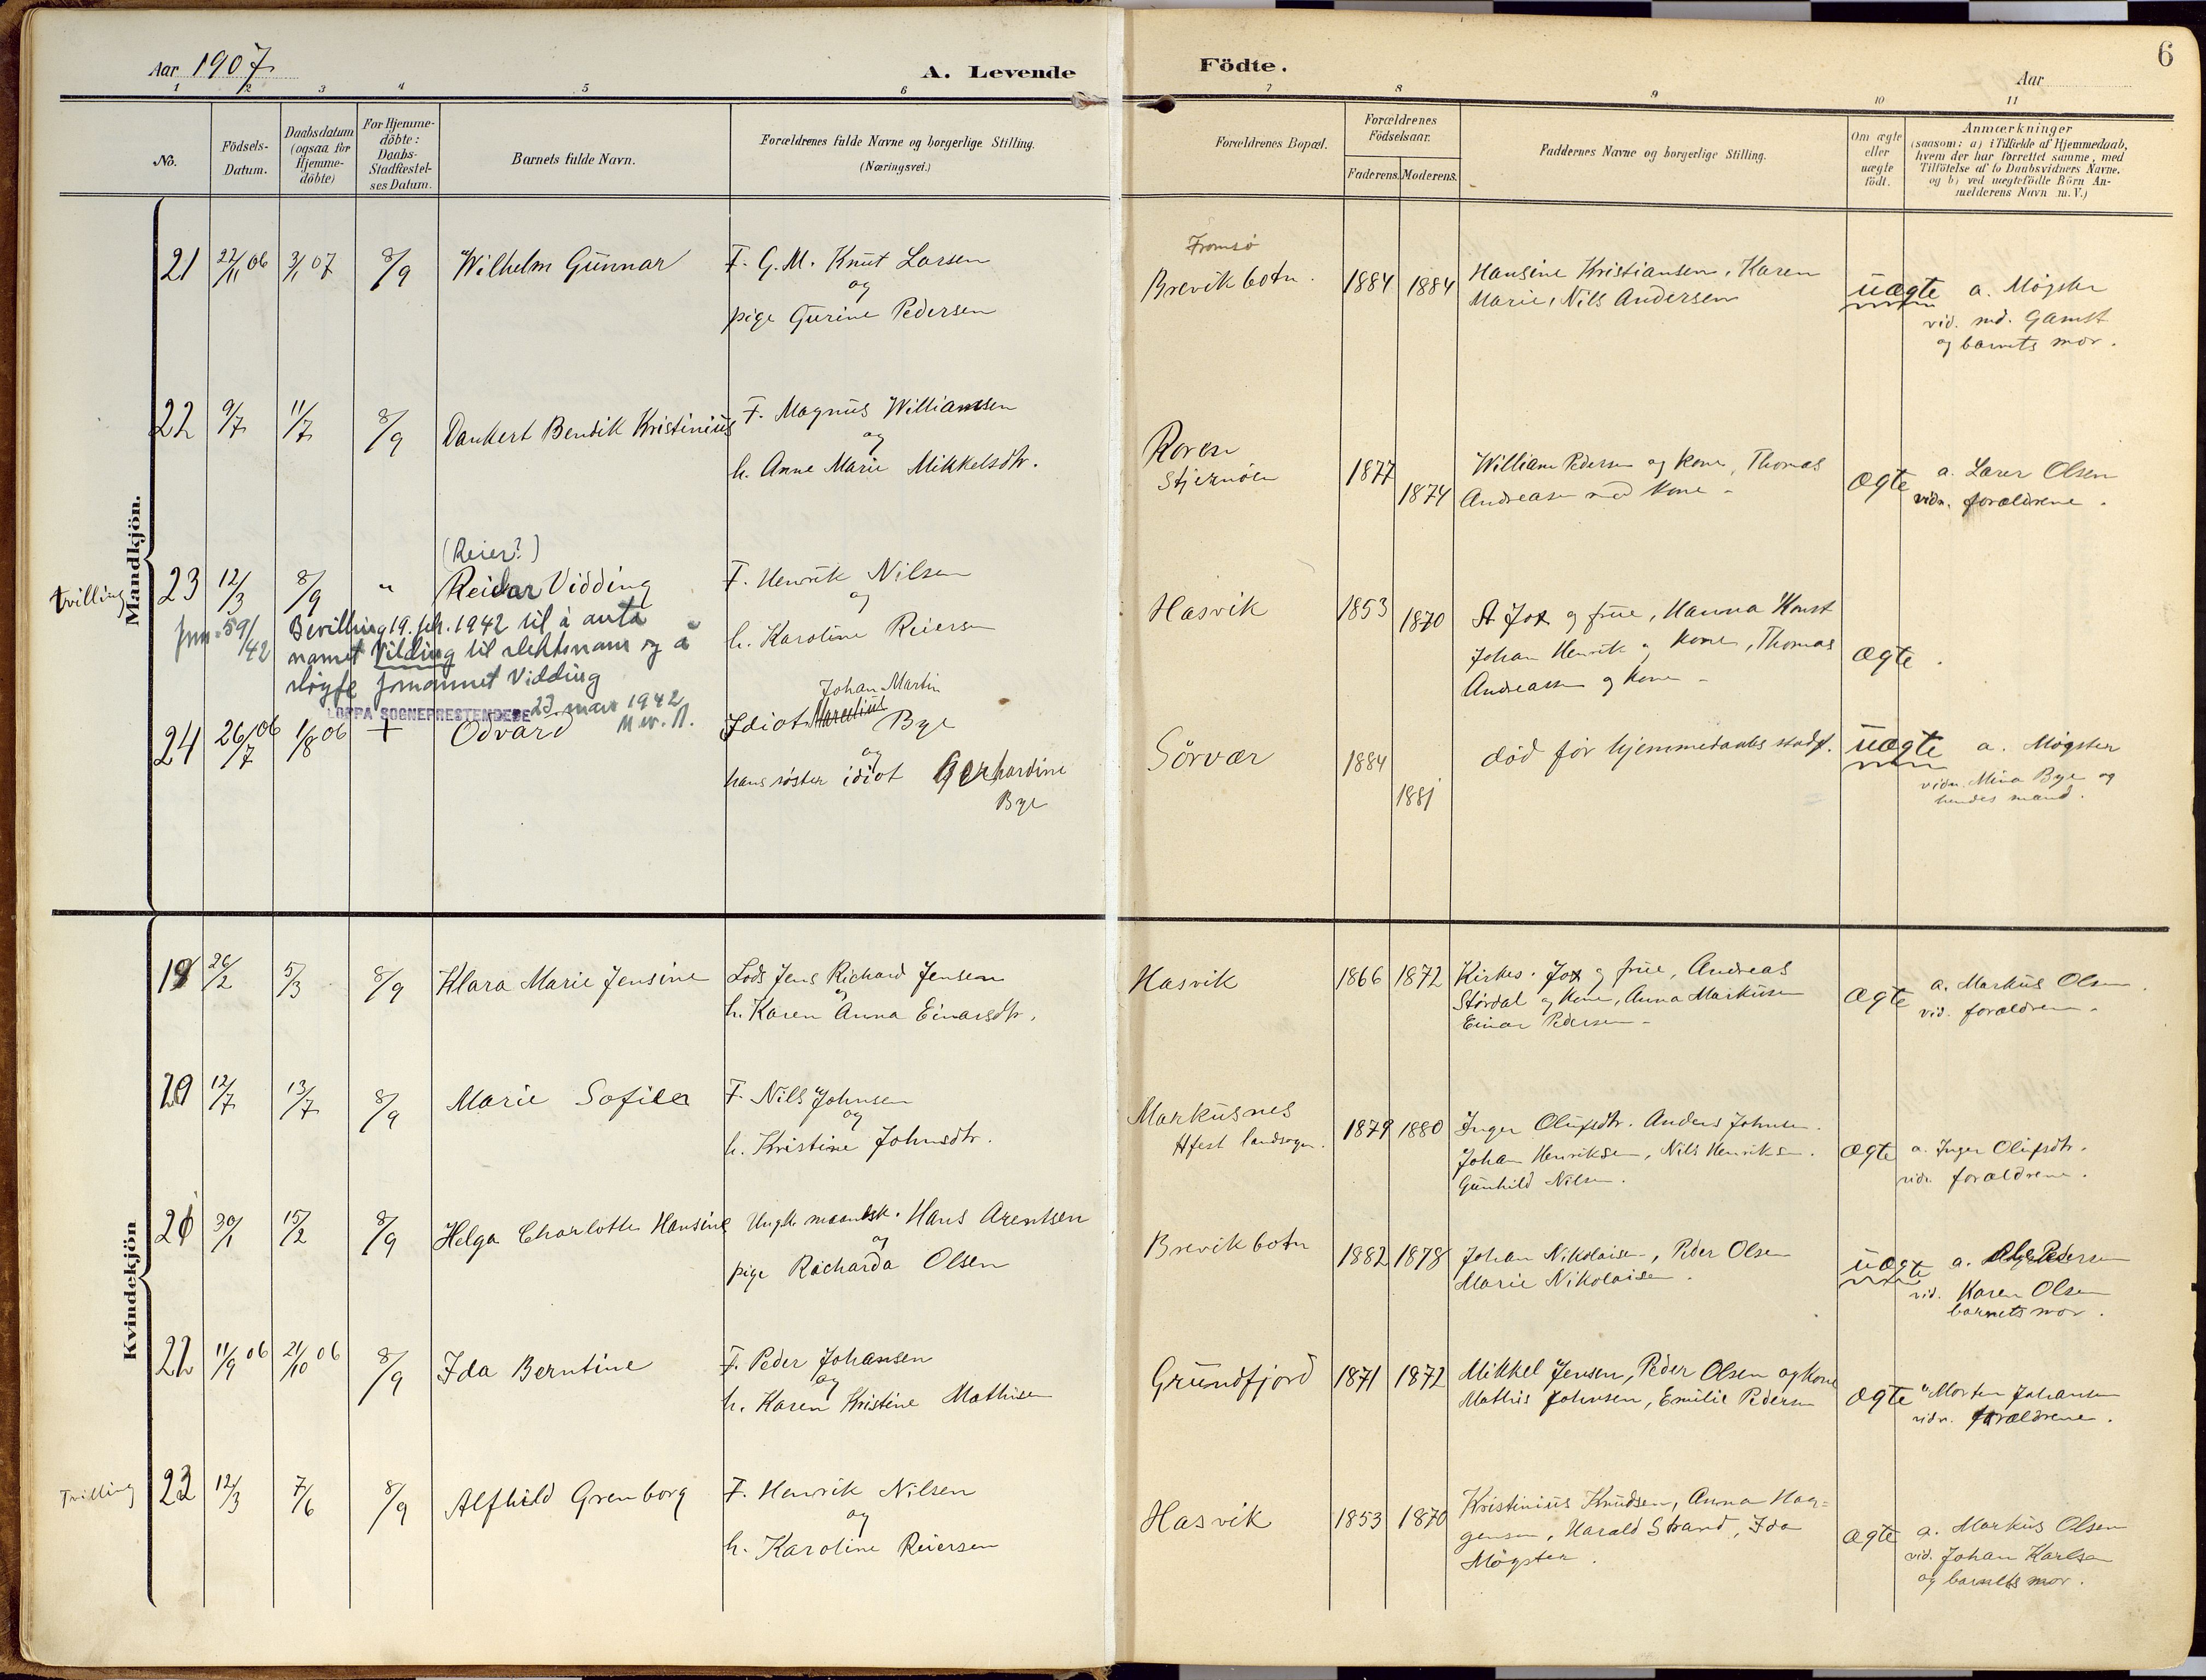 Aar 1907
A. Levende
Födte.
Aar
6
1 2 3 4 5 6 7 8 9 10 11
No.
Födsels-
Datum.
Daabsdatum
(ogsaa for
Hjemme-
döbte)
For Hjemme-
döbte:
Daabs-
Stadfæstel-
ses Datum.
Barnets fulde Navn.
Forældrenes fulde Navne og borgerlige Stilling.
(Næringsvei.)
Forældrenes Bopæl.
Forældrenes
Födselsaar.
Faderens. Moderens.
Faddernes Navne og borgerlige Stilling.
Om ægte
eller
uægte
födt.
Anmærkninger
(saasom: a) i Tilfælde af Hjemmedaab,
hvem der har forrettet samme, med
Tilföielse af to Daabsvidners Navne,
og b) ved uægtefödte Börn An-
melderens Navn m. V.)
Mandkjön.
21 22/11 06 3/1 07 8/9 Wilhelm Gunnar
F. G. M. Knut Larsen
og
pige Gurine Pedersen
Tromsö
Brevikbotn. 1884 1884
Hansine Kristiansen, Karen
Marie, Nils Andersen
uægte
a. Mögster
vid. md. Gamst
og barnets mor.
22 9/7 11/7 8/9 Dankert Bendik Kristinius
F. Magnus Williamsen
og
h. Anne Marie Mikkelsdtr.
Stjernöen 1877 1874
William Pedersen og kone, Thomas
Andreasen med kone -
ægte
a. Larer Olsen
vidn. forældrene.
tvilling
(Reier?)
23 12/3 8/9 " Reidar Vidding
Jrnr. 59/42
Bevilling 19. feb. 1942 til å anta
namet Vilding til slektsnam og å
sløyfe fornamnet Vidding
LOPPA SOGNEPRESTEMBEDE 23. mars 1942
F. Henrik Nilsen
og
h. Karoline Reiersen
Hasvik 1853 1870
St Fox og frue, Hanna Konst
Johan Henrik og kone, Thomas
Andreassen og kone -
ægte.
24 26/7 06 1/8 06 + Odvard
Johan Martin
Idiot Marelius Bye
og
hans söster idiot Gerhardine
Bye
Sörvær 1884 1881
död för hjemmedaabs stadf.
uægte
a. Mögster
vidn. Mina Bye og
hendes mand.
Kvindekjön
19 26/2 5/3 8/9 Klara Marie Jensine
Lods Jens Richard Jensen
og
h. Karen Anna Einarsdtr.
Hasvik 1866 1872
Kirkes. Fox og frue, Andreas
Stördal og kone, Anna Markusen
Einar Pedersen -
ægte
a. Markus Olsen.
vid. forældrene.
20 12/7 13/7 8/9 Marie Sofie
F. Nils Johnsen
og
h. Kristine Johnsdtr.
Markusnes
Hfest landsogn. 1879 1880
Inger Olufsdtr. Anders Johnsen.
Johan Henriksen, Nils Henriksen.
Gunhild Nilsen.
ægte
a. Inger Olufsdtr.
vidn. forældrene.
21 30/1 15/2 8/9 Helga Charlotte Hansine
Ungk. maandsk. Hans Arentsen
og
pige Racharda Olsen
Brevikbotn 1882 1878
Johan Nikolaisen, Peder Olsen
Marie Nikolaisen.
uægte
a. Ole Pedersen
vid. Karen Olsen
barnets mor.
22 11/9 06 21/10 06 8/9 Ida Berntine
F. Peder Johansen
og
h. Karen Kristine Mathisen
Grundfjord 1871 1872
Mikkel Jensen, Peder Olsen og kone
Mathis Johnsen, Emilie Pedersen
ægte
a Morten Johansen
vidn. forældrene.
Tvilling
23 12/3 7/6 8/9 Alfhild Grenborg
F. Henrik Nilsen
og
h. Karoline Reiersen
Hasvik 1853 1870
Kristinius Knudsen, Anna Haa-
gensen, Harald Strand, Ida
Mögster.
ægte
a. Markus Olsen
vid. Johan Karlsen
og barnets mor.